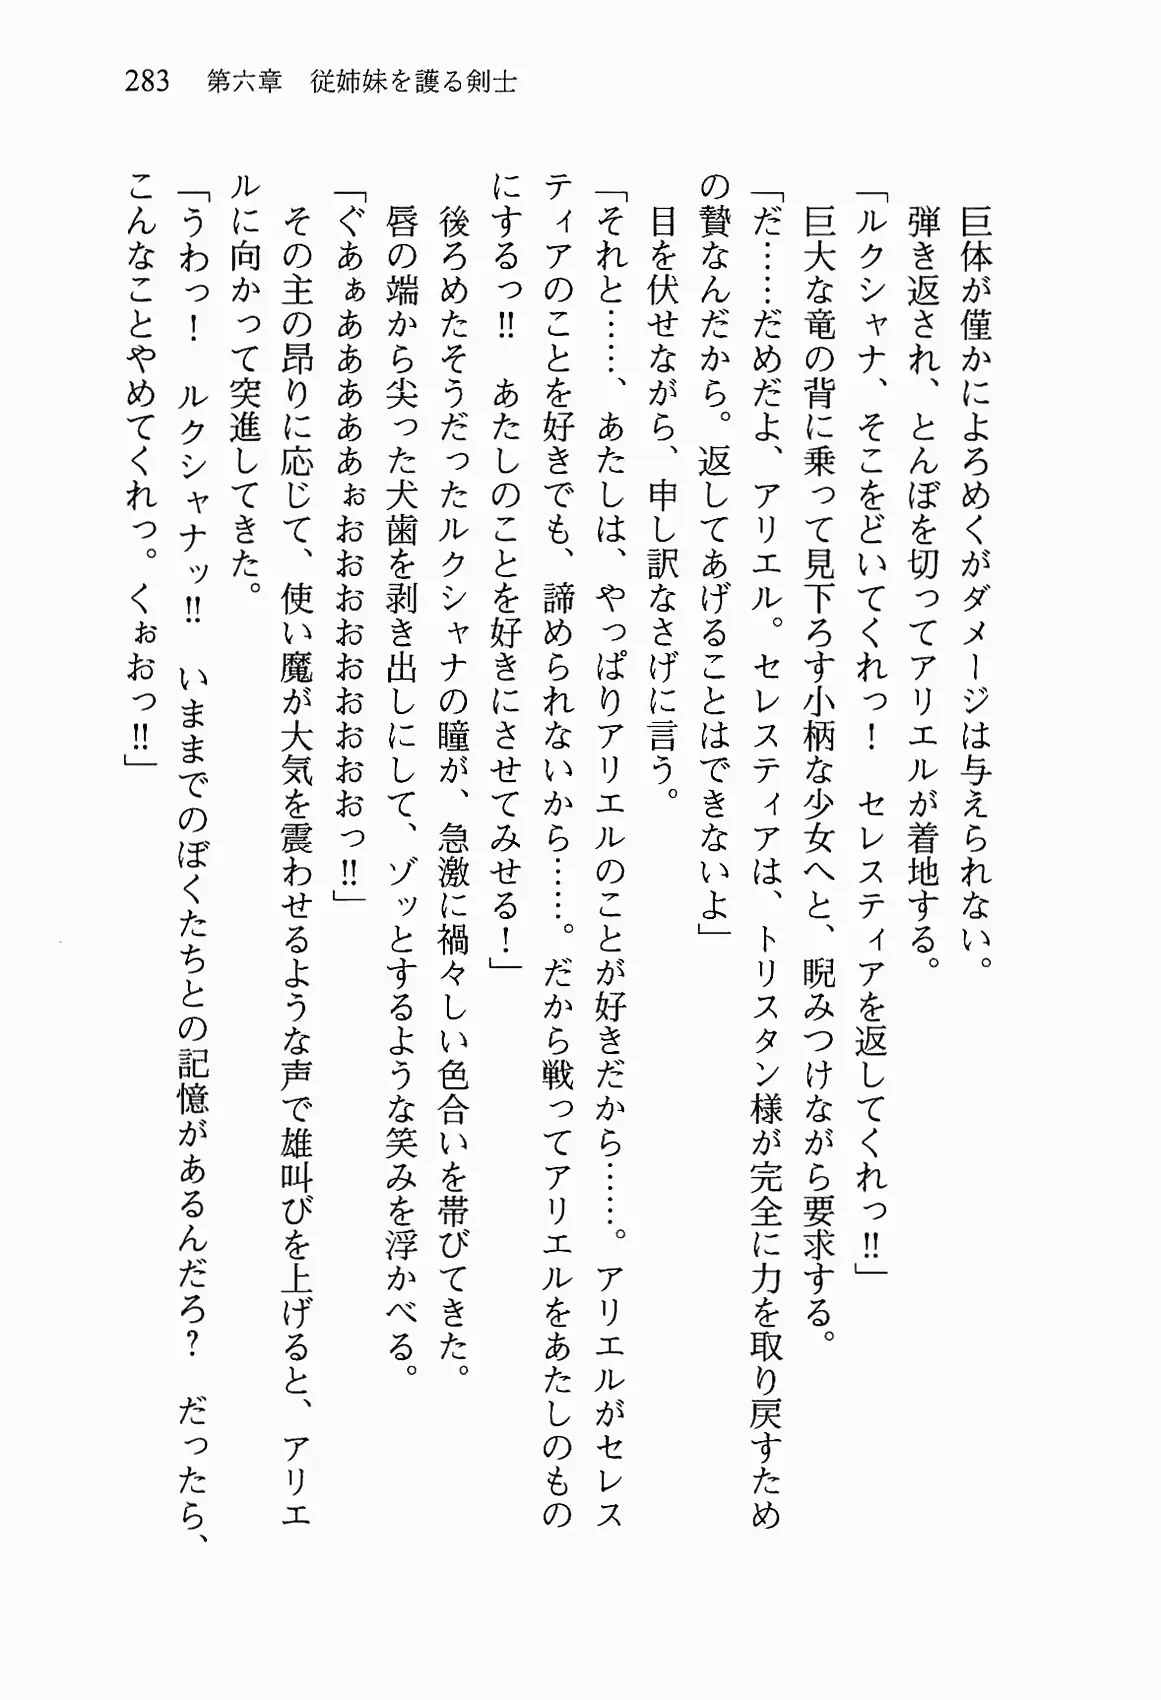 283　第六章　従姉妹を護る剣士
　巨体が僅かによろめくがダメージは与えられない。
　弾き返され、とんぼを切ってアリエルが着地する。
「ルクシャナ、そこをどいてくれっ！　セレスティアを返してくれっ‼」
　巨大な竜の背に乗って見下ろす小柄な少女へと、睨みつけながら要求する。
「だ……だめだよ、アリエル。セレスティアは、トリスタン様が完全に力を取り戻すため
の贄なんだから。返してあげることはできないよ」
　目を伏せながら、申し訳なさげに言う。
「それと……、あたしは、やっぱりアリエルのことが好きだから……。アリエルがセレス
ティアのことを好きでも、諦められないから……。だから戦ってアリエルをあたしのもの
にするっ‼　あたしのことを好きにさせてみせる！」
　後ろめたそうだったルクシャナの瞳が、急激に禍々しい色合いを帯びてきた。
　唇の端から尖った犬歯を剥き出しにして、ゾッとするような笑みを浮かべる。
「ぐあぁあああああぉおおおおおおおおっ‼」
　その主の昂りに応じて、使い魔が大気を震わせるような声で雄叫びを上げると、アリエ
ルに向かって突進してきた。
「うわっ！　ルクシャナッ‼　いままでのぼくたちとの記憶があるんだろ？　だったら、
こんなことやめてくれっ。くぉおっ‼」